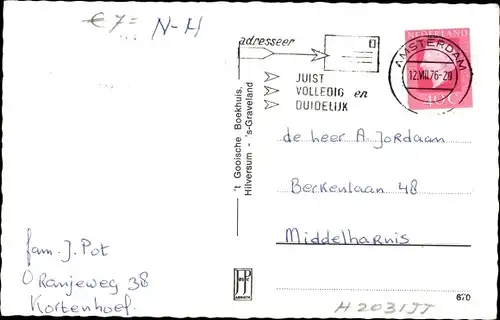 € 7= N-H
adresseer
JUIST
VOLLEDIG en
DUIDELIJK
NEDERLAND
40c
AMSTERDAM
12.VIII.76-20
't Gooische Boekhuis,
Hilversum - 's-Graveland
de heer A. Jordaan
Berkenlaan 48
Middelharnis
fam. J. Pot
Oranjeweg 38
Kortenhoef.
JP
670
H2031JJ